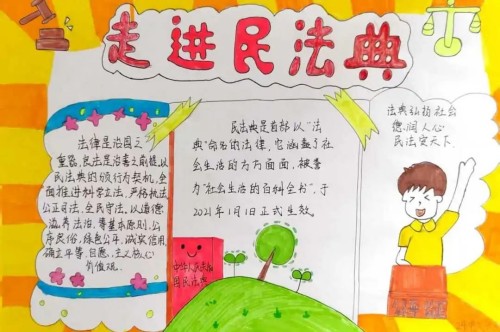 走进民法典
法律是治国之
重器,良法是治善之前提,以
民法典的颁行为契机,全
面推进科学立法,严格执法
公正司法,全民守法,以道德
滋养法治,尊基本原则,公
序良俗,绿色公平,诚实信用
确立平等,自愿,主义核心
价值观。
民法典是首部以“法
典”命名的法律,它涵盖了社
会生活的方方面面,被誉
为“社会生活的百科全书”,于
2021年1月1日正式生效。
法典弘扬社会
德,润人心
民法安天下.
中华人民共和
国民法典